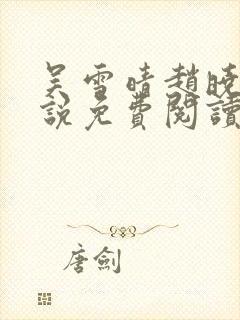 吴雪晴趙曉
說免費閱讀
唐劍